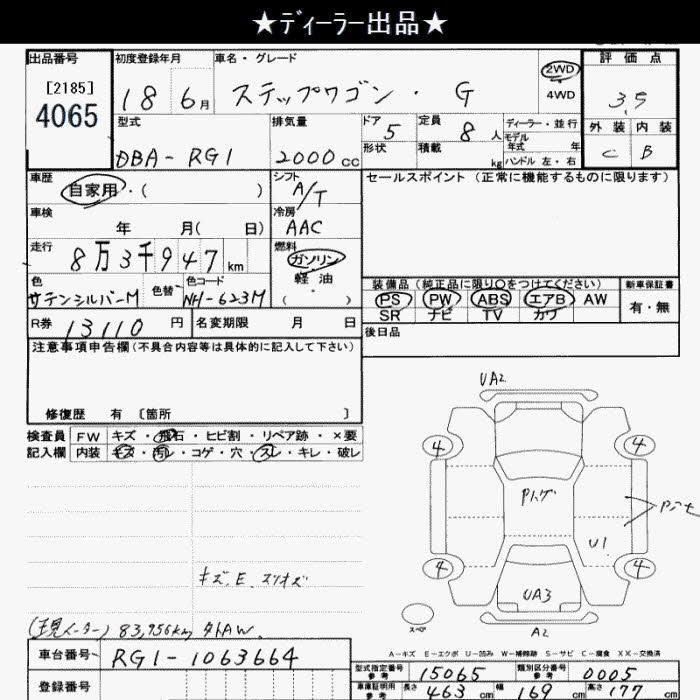 ★ディーラー出品★
出品番号 初度登録年月 車名・グレード 評価点
[2185] 4065 18 6月 ステップワゴン・G 2WD 4WD 3.5
外装 内装
C B
型式 排気量 ドア 定員 ディーラー・並行
DBA-RG1 2000cc 5 8人 モデル年式 年
形状 積載 kg ハンドル 左・右
車歴 シフト セールスポイント (正常に機能するものに限ります)
自家用・( ) A/T
車検 冷房
年 月( 日) AAC
走行 燃料
8万3千947km ガソリン
軽油
( ・ )
色 色替 色コード
サテンシルバーM NH-623M
装備品 (純正品に限り○をつけてください) 新車保証書
PS PW ABS エアB AW 有・無
SR ナビ TV カワ
R券 13110円 名変期限 月 日 後日品
注意事項申告欄(不具合内容等は具体的に記入して下さい)
修復歴 有 〔箇所 〕
検査員 FW キズ・飛石・ヒビ割・リペア跡・×要
記入欄 内装 キズ・汚れ・コゲ・穴・スレ・キレ・破レ
UA2
4 4
U1
4 4
UA3
スペア A2
キズ.E.
(現メーター) 83,956km AW.
A-キズ E-エクボ U-凹み W-補修跡 S-サビ C-腐食 XX-交換済
車台番号 RG1-1063664
登録番号
型式指定番号 参考 15065 類別区分番号 参考 0005
車庫証明用 参考 長さ 463cm 幅 169cm 高さ 177cm